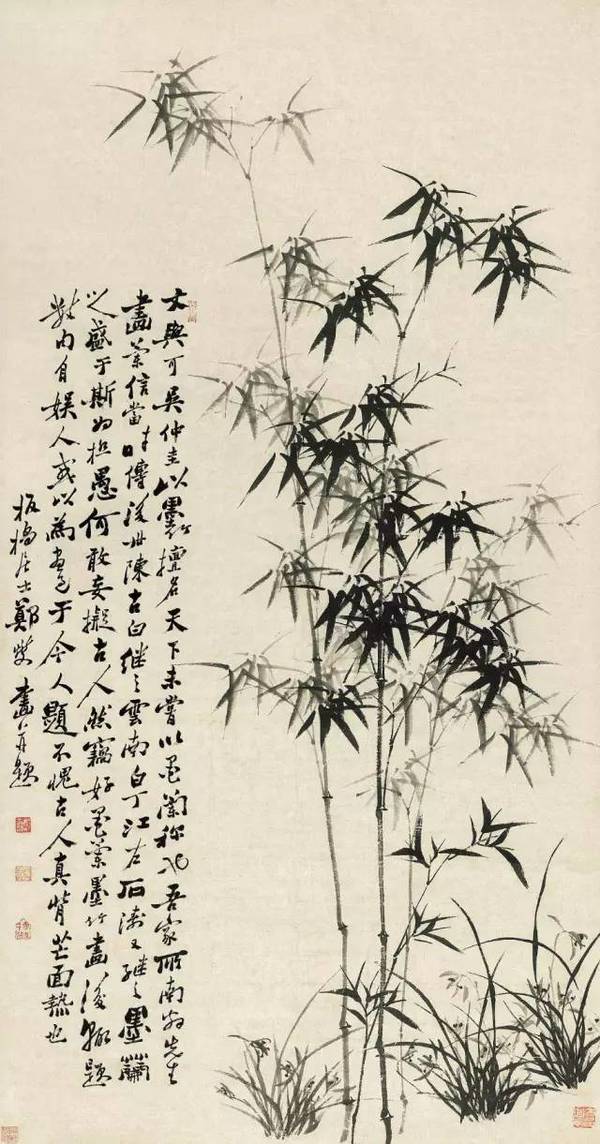 文與可吳仲圭以墨竹擅名天下未嘗以墨蘭稱也吾家所南翁先生
畫蘭信當時傳後世陳古白繼之雲南白丁江左石濤又繼之墨蘭
之盛于斯為極愚何敢妄擬古人然竊好墨蘭墨竹畫後輒題
數句自娛人或以為畫于今人題不愧古人真背芒面熱也
板橋居士鄭燮畫并題